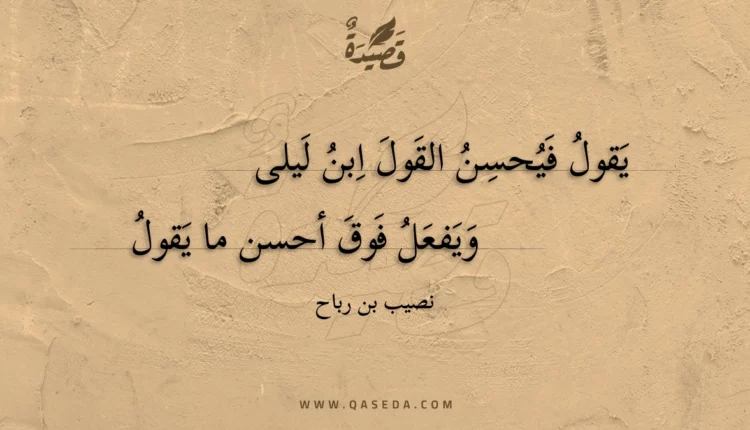 قَصِيدَةٌ
يَقولُ فَيُحسِنُ القَولَ اِبنُ لَيلى
وَيَفعَلُ فَوقَ أحسن ما يَقولُ
نصيب بن رباح
WWW.QASEDA.COM